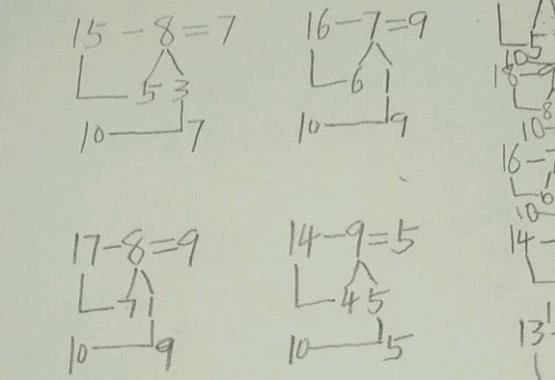 15-8=7
5 3
10 7
16-7=9
6 1
10 9
17-8=9
7 1
10 9
14-9=5
4 5
10 5
5
10
18-9
8
10
16-7
6
10
14-
13